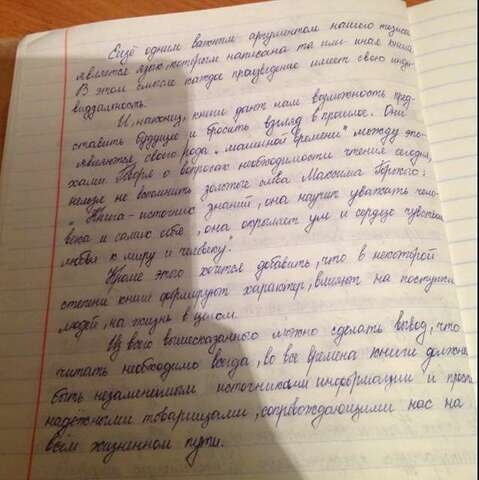 Ещё одним важным аргументом нашего тезиса
является язык, которым написана та или иная книга.
В этом смысле каждое произведение имеет свою инди-
видуальность.
И, наконец, книги дают нам возможность пред-
ставить будущее и бросить взгляд в прошлое. Они
являются своего рода „машиной времени" между эпо-
хами. Говоря о вопросах необходимости чтения сегодня,
нельзя не вспомнить золотые слова Максима Горького:
„Книга - источник знаний, она научит уважать чело-
века и самих себя, она окрыляет ум и сердце чувством
любви к миру и человеку."
Кроме этого хочется добавить, что в некоторой
степени книги формируют характер, влияют на поступки
людей, на жизнь в целом.
Из всего вышесказанного можно сделать вывод, что
читать необходимо всегда, во все времена книги должны
быть незаменимыми источниками информации и просто
надёжными товарищами, сопровождающими нас на
всём жизненном пути.